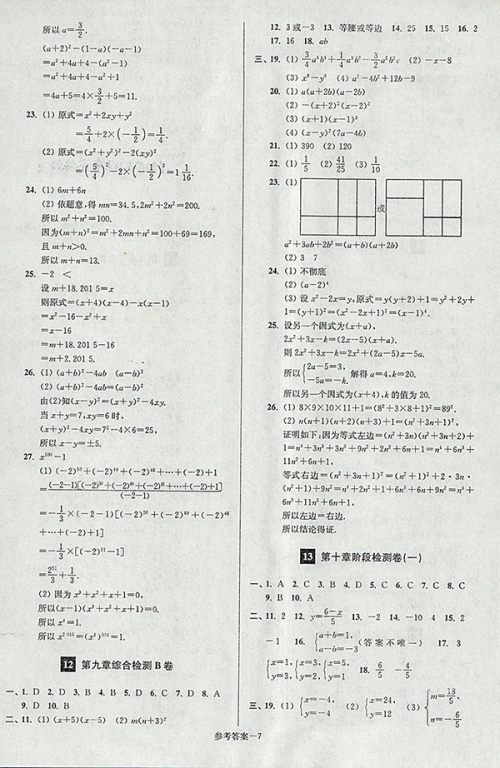 所以a=3/2.
(a+2)²-(1-a)(-a-1)
=a²+4a+4-(a²-1)
=a²+4a+4-a²+1
=4a+5=4×3/2+5=11.
23. (1) 原式=x²+2xy+y²
=5/4+2×(-1/2)=1/4.
(2) 原式=(x²+y²)²-2(xy)²
=(5/4)²-2×(-1/2)²=1 1/16.
24. (1) 6m+6n
(2) 依题意,得mn=34.5,2m²+2n²=200.
所以m²+n²=100.
因为(m+n)²=m²+2mn+n²=100+69=169,
且m+n>0.
所以m+n=13.
25. -2 <
设m+18.201 5=x
则原式=(x+4)(x-4)-x(x-1)
=x²-16-x²+x
=x-16
=m+18.201 5-16
=m+2.201 5.
26. (1) (a+b)²-4ab (a-b)²
(2) (a+b)²-4ab=(a-b)²
由(2)知(x-y)²=(x+y)²-4xy.
当x+y=7,xy=6时,
(x+y)²-4xy=7²-4×6=25,
所以x-y=±5.
27. x¹⁰⁰-1
(1) (-2)⁵⁰+(-2)⁴⁹+(-2)⁴⁸+…+(-2)+1
=[(-2-1)[(-2)⁵⁰+(-2)⁴⁹+(-2)⁴⁸+…+(-2)+1]]/(-2-1)
=-1/3×(-2-1)[(-2)⁵⁰+(-2)⁴⁹+(-2)⁴⁸
+…+(-2)+1]
=-1/3×[(-2)⁵¹-1]
=2⁵¹/3+1/3.
(2) 因为x³+x²+x+1=0,
所以(x-1)(x³+x²+x+1)=0.
所以x⁴=1.
所以x²⁰¹⁶=(x⁴)⁵⁰⁴=1.
12 第九章综合检测B卷
一、1. D 2. D 3. B 4. D 5. C 6. D 7. D 8. A
9. D 10. D
二、11. (1) (x+5)(x-5) (2) m(n+3)²
12. 3或-3 13. 等腰或等边 14. 25 15. 15 16. 2
17. 16 18. ab
三、19. (1) 3/4a⁴b⁴+1/4a³b²-3/2a²b²c (2) -x-8
(3) x⁸-y⁸ (4) a²-4b²+12b-9
20. (1) a(a+2b)(a-2b)
(2) -(x+2)²(x-2)²
(3) (x+1)(x-1)³
(4) (x-y)²(7a-4b)
21. (1) 390 (2) 120
22. (1) 1/5 (2) 41/25 (3) 1/10
23. (1)
或
a²+3ab+2b²=(a+b)(a+2b)
(2) 3 7
24. (1) 不彻底
(2) (a-2)⁴
(3) 设x²-2x=y,原式=y(y+2)+1=y²+2y+
1=(y+1)²=(x²-2x+1)²=(x-1)⁴.
25. 设另一个因式为(x+a),
2x²+3x-k=(2x-5)(x+a).
则2x²+3x-k=2x²+(2a-5)x-5a.
所以{2a-5=3, -5a=-k. 解得a=4,k=20.
所以另一个因式为(x+4),k的值为20.
26. (1) 8×9×10×11+1=(8²+3×8+1)²=89².
(2) n(n+1)(n+2)(n+3)+1=(n²+3n+1)².
证明如下,因为等式左边=(n²+3n)(n²+3n+2)+
1=n⁴+3n³+3n³+9n²+2n²+6n+1=n⁴+6n³+
11n²+6n+1,
等式右边=(n²+3n+1)²=(n²+1)²+2·3n·
(n²+1)+9n²=n⁴+2n²+1+6n³+6n+9n²=n⁴+
6n³+11n²+6n+1,
所以左边=右边.
所以结论得证.
13 第十章阶段检测卷(一)
一、1. A 2. C 3. B 4. D 5. C 6. C 7. C 8. C
9. B 10. A
二、11. 2 12. y=(6-x)/5 13. -2 14. -10 4 15. 2
-1 16. {a+b=1, a-b=-3 (答案不唯一) 17. 3
{x=1, y=3, {x=3, y=2, {x=5, y=1. 18. 6/5 -4/5
三、19. (1) {x=-4, y=-4 (2) {x=24, y=12 (3) {m=18/5, n=-6/5
参考答案—7